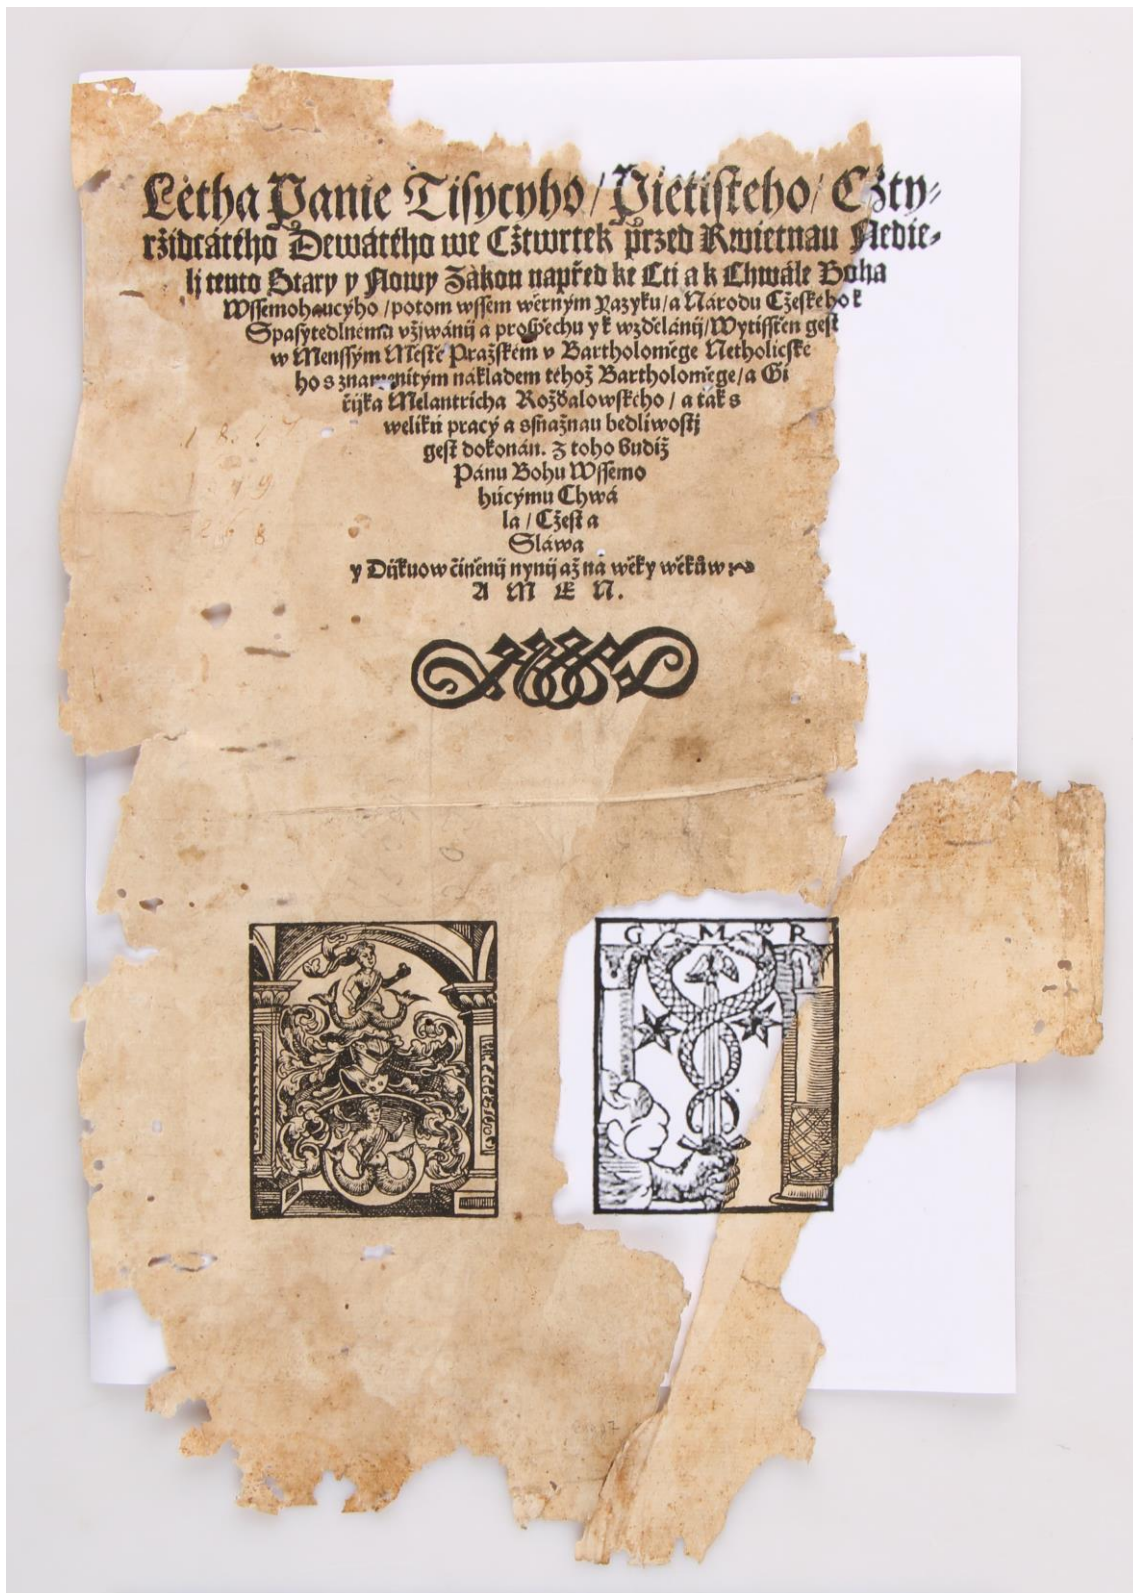 Létha Panie Tisycyho / Pietisteho / Cžty-
ržidcátého Dewátého we Cžtwrtek przed Kwietnau Nedie-
lj tento Stary y Nowy Zákon napřed ke Cti a k Chwále Boha
Wssemohaucyho / potom wssem wěrným Yazyku / a Národu Cžeskeho k
Spasytedlnému vžjwánij a prospěchu y k wzdělánij / Wytisstěn gest
w Menssým Městě Pražském v Bartholoměge Netholicské
ho s znamenitým nákladem téhož Bartholoměge / a Gi
řijka Melantricha Roždalowského / a ták s
welikú pracý a ssnažnau bedliwostj
gest dokonán. Z toho budiž
Pánu Bohu Wssemo
húcýmu Chwá
la / Cžest a
Sláwa
y Dijkuow činěnij nynij až ná wěky wěkůw
A M E N.
G M R